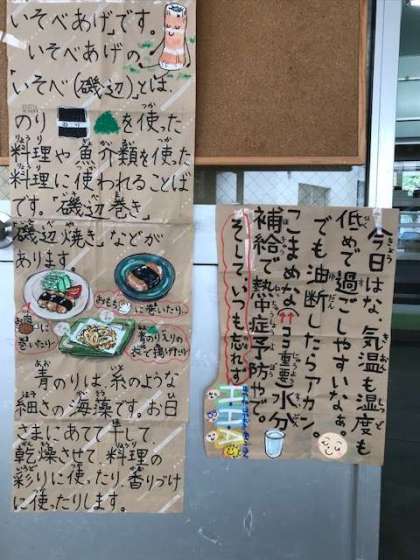 いそべあげです。
いそべあげの
「いそべ(磯辺)」とは、
のり のり を使った
料理や魚介類を使った
料理に使われることば
です。「磯辺巻き」
磯辺焼き」などが
あります。
おもちに巻いたり、
に巻いたり
青のり入りの
衣で揚げたり
青のりは、糸のような
細さの海藻です。お日
さまにあてて干して、
乾燥させて、料理の
彩りに使ったり、香りづけ
に使ったりします。
今日はな、気温も湿度も
低めで過ごしやすいなぁ。
でも油断したらアカン。
こまめな(↑↑ココ重要)水分
補給で熱中症予防やで。
そしていつも忘れず
H.H.A